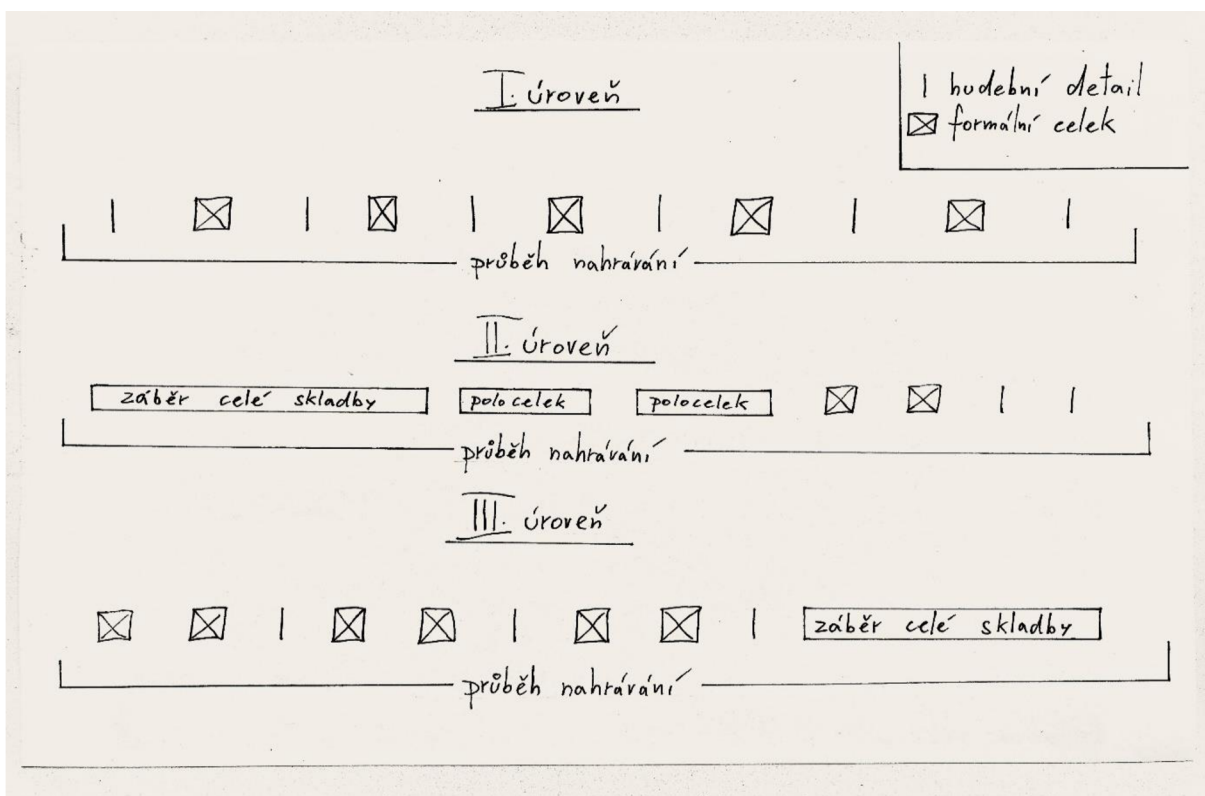 I. úroveň
hudební detail
formální celek
průběh nahrávání
II. úroveň
záběr celé skladby polocelek polocelek
průběh nahrávání
III. úroveň
záběr celé skladby
průběh nahrávání